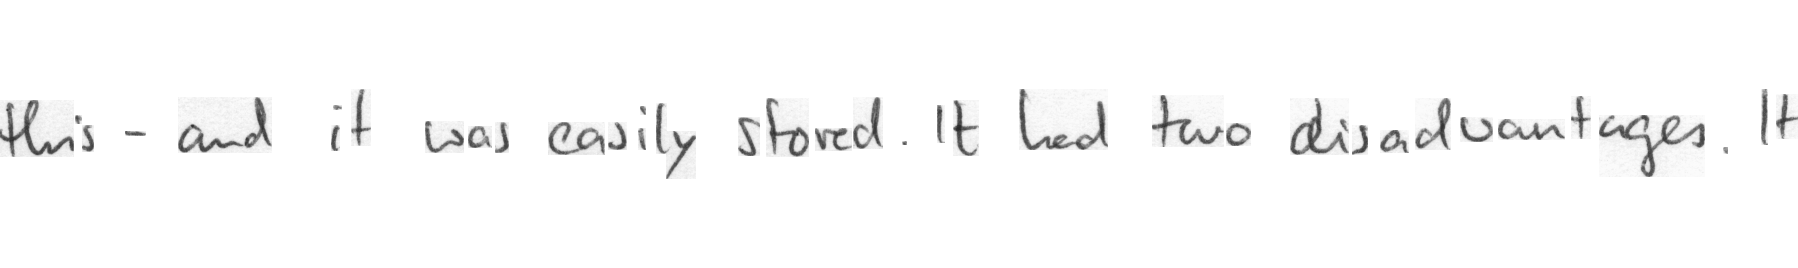 this - and it was easily stored. It had two disadvantages. It